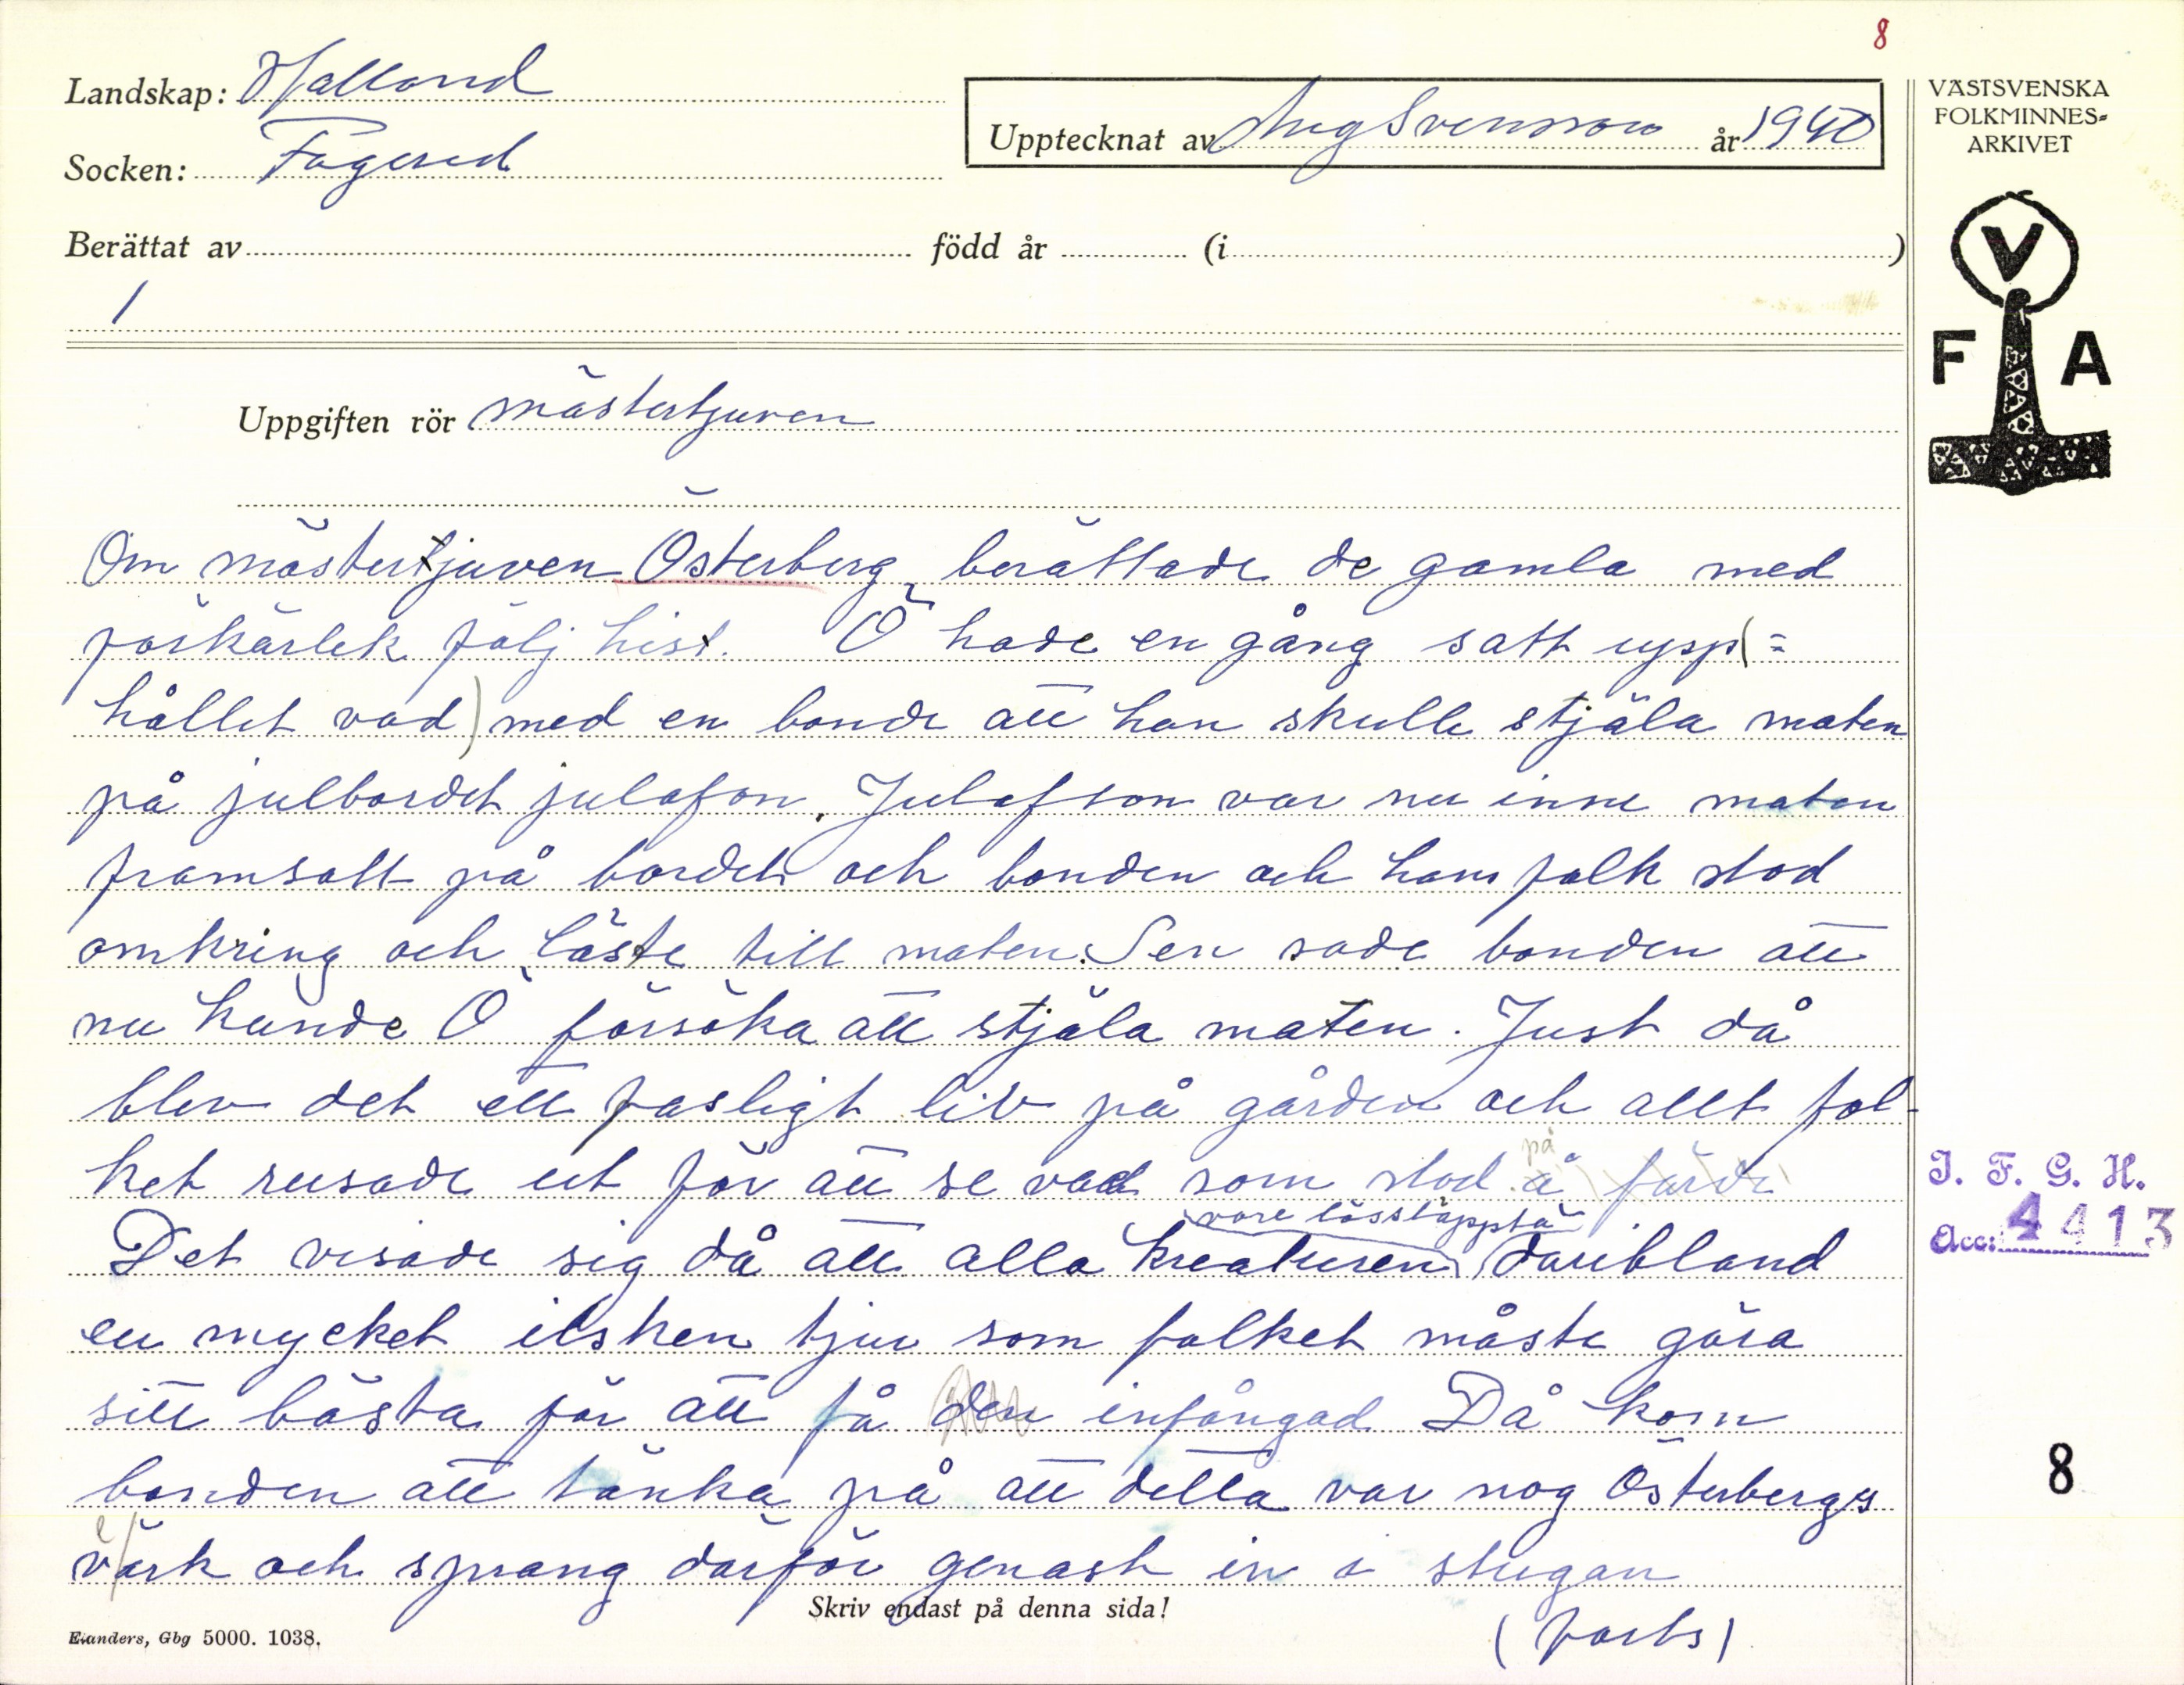 8
Landskap: Halland
Socken: Fagered
Upptecknat av Aug Svensson år 1940
Berättat av född år (i )
1
VÄSTSVENSKA
FOLKMINNES=
ARKIVET
V
F A
Uppgiften rör mästertjuven
Om mästertjuven Österberg berättade de gamla med
förkärlek följ hist. Ö hade en gång satt upp(=
hållet vad) med en bonde att han skulle stjäla maten
på julbordet julafon. Julafton var nu inne maten
framsatt på bordet och bonden och hans folk stod
omkring och läste till maten. Sen sade bonden att
nu kunde Ö försöka att stjäla maten. Just då
blev det ett fasligt liv på gården och allt fol-
ket rusade ut för att se vad som stod å färde
på
vore lössläppta
Det visade sig då att alla kreaturen däribland
en mycket ilsken tjur som folket måste göra
sitt bästa för att få den infångad Då kom
bonden att tänka på att detta var nog Österbergs
värk och sprang därför genast in i stugan
e/
Skriv endast på denna sida!
(forts)
Elanders, Gbg 5000. 1038.
I. F. G. H.
Acc: 4413
8